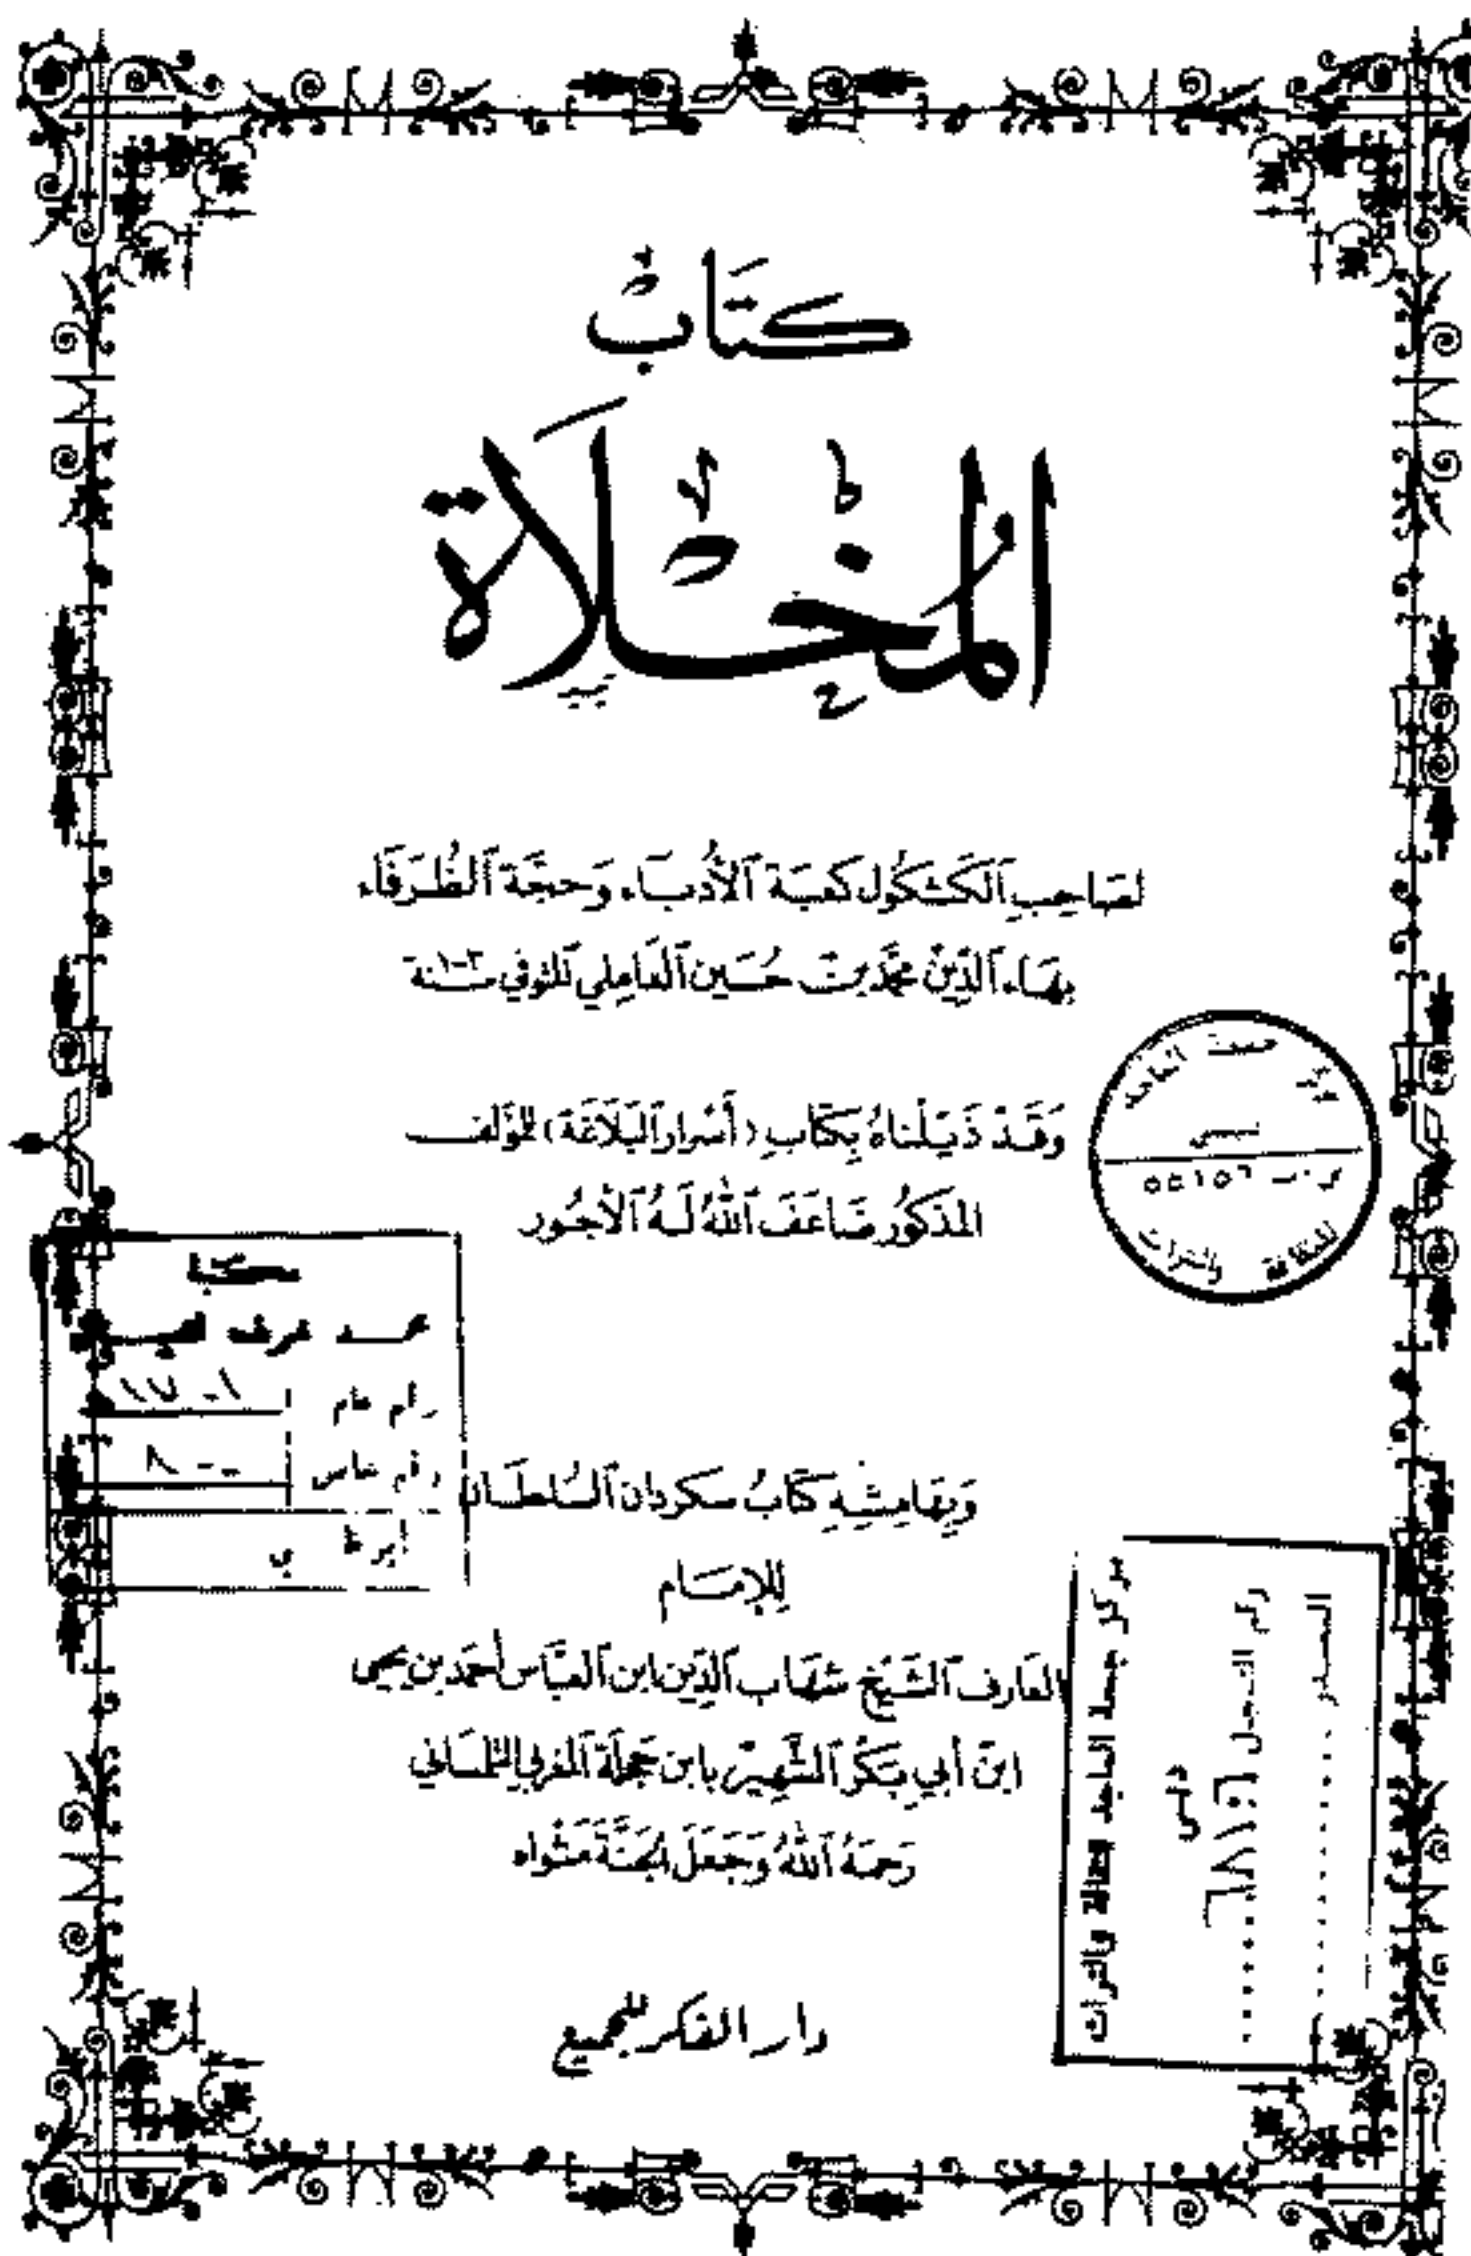 كتاب
المخلاة
لصاحب الكشكول كعبة الأدباء وحجة الظرفاء
بهاء الدين محمد بن حسين العاملي المتوفى سنة ١٠٠٣
وقد ذيلناه بكتاب (أسرار البلاغة) للمؤلف
المذكور ضاعف الله له الأجور
جمعة الماجد
دبي
ص.ب ٥٥١٥٦
للثقافة والتراث
مكتبة
محمد
رقم عام ١٧٠١
رقم خاص ٨٠٠
وبهامشه كتاب سكردان السلطان
للإمام
العارف الشيخ شهاب الدين ابن العباس أحمد بن يحيى
ابن أبي بكر الشهير بابن حجلة المغربي التلمساني
رحمه الله وجعل الجنة مثواه
مركز جمعة الماجد للثقافة والتراث
دبي
رقم التسجيل
المصدر
دار الفكر للجميع